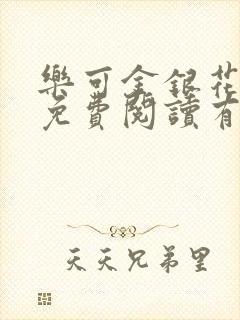 樂可金銀花
免費閱讀有
天天兄弟里